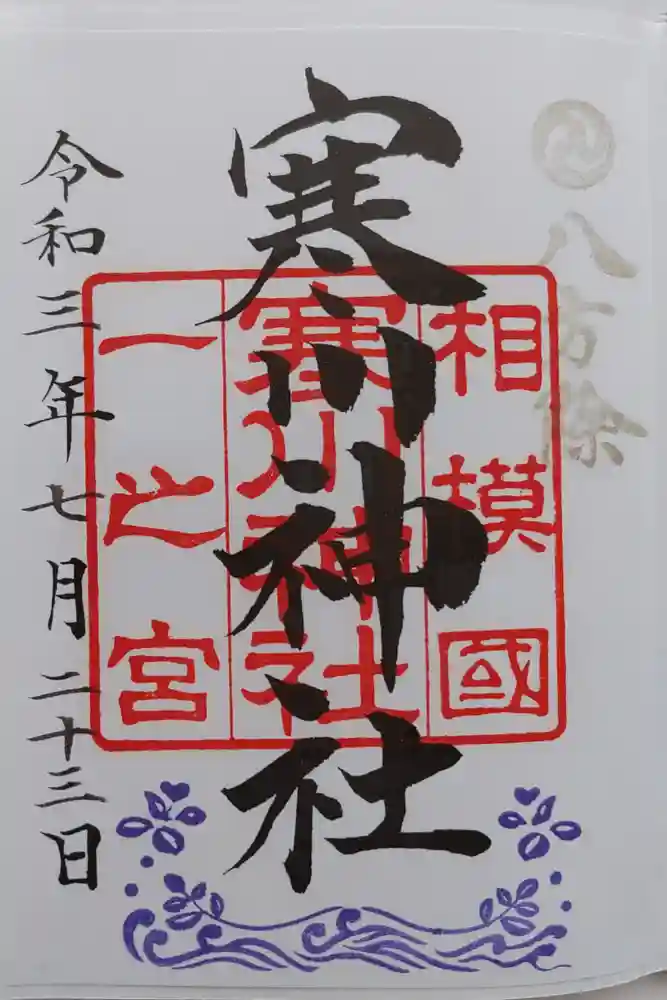 八方除
寒川神社
相模國
寒川神社
一之宮
令和三年七月二十三日